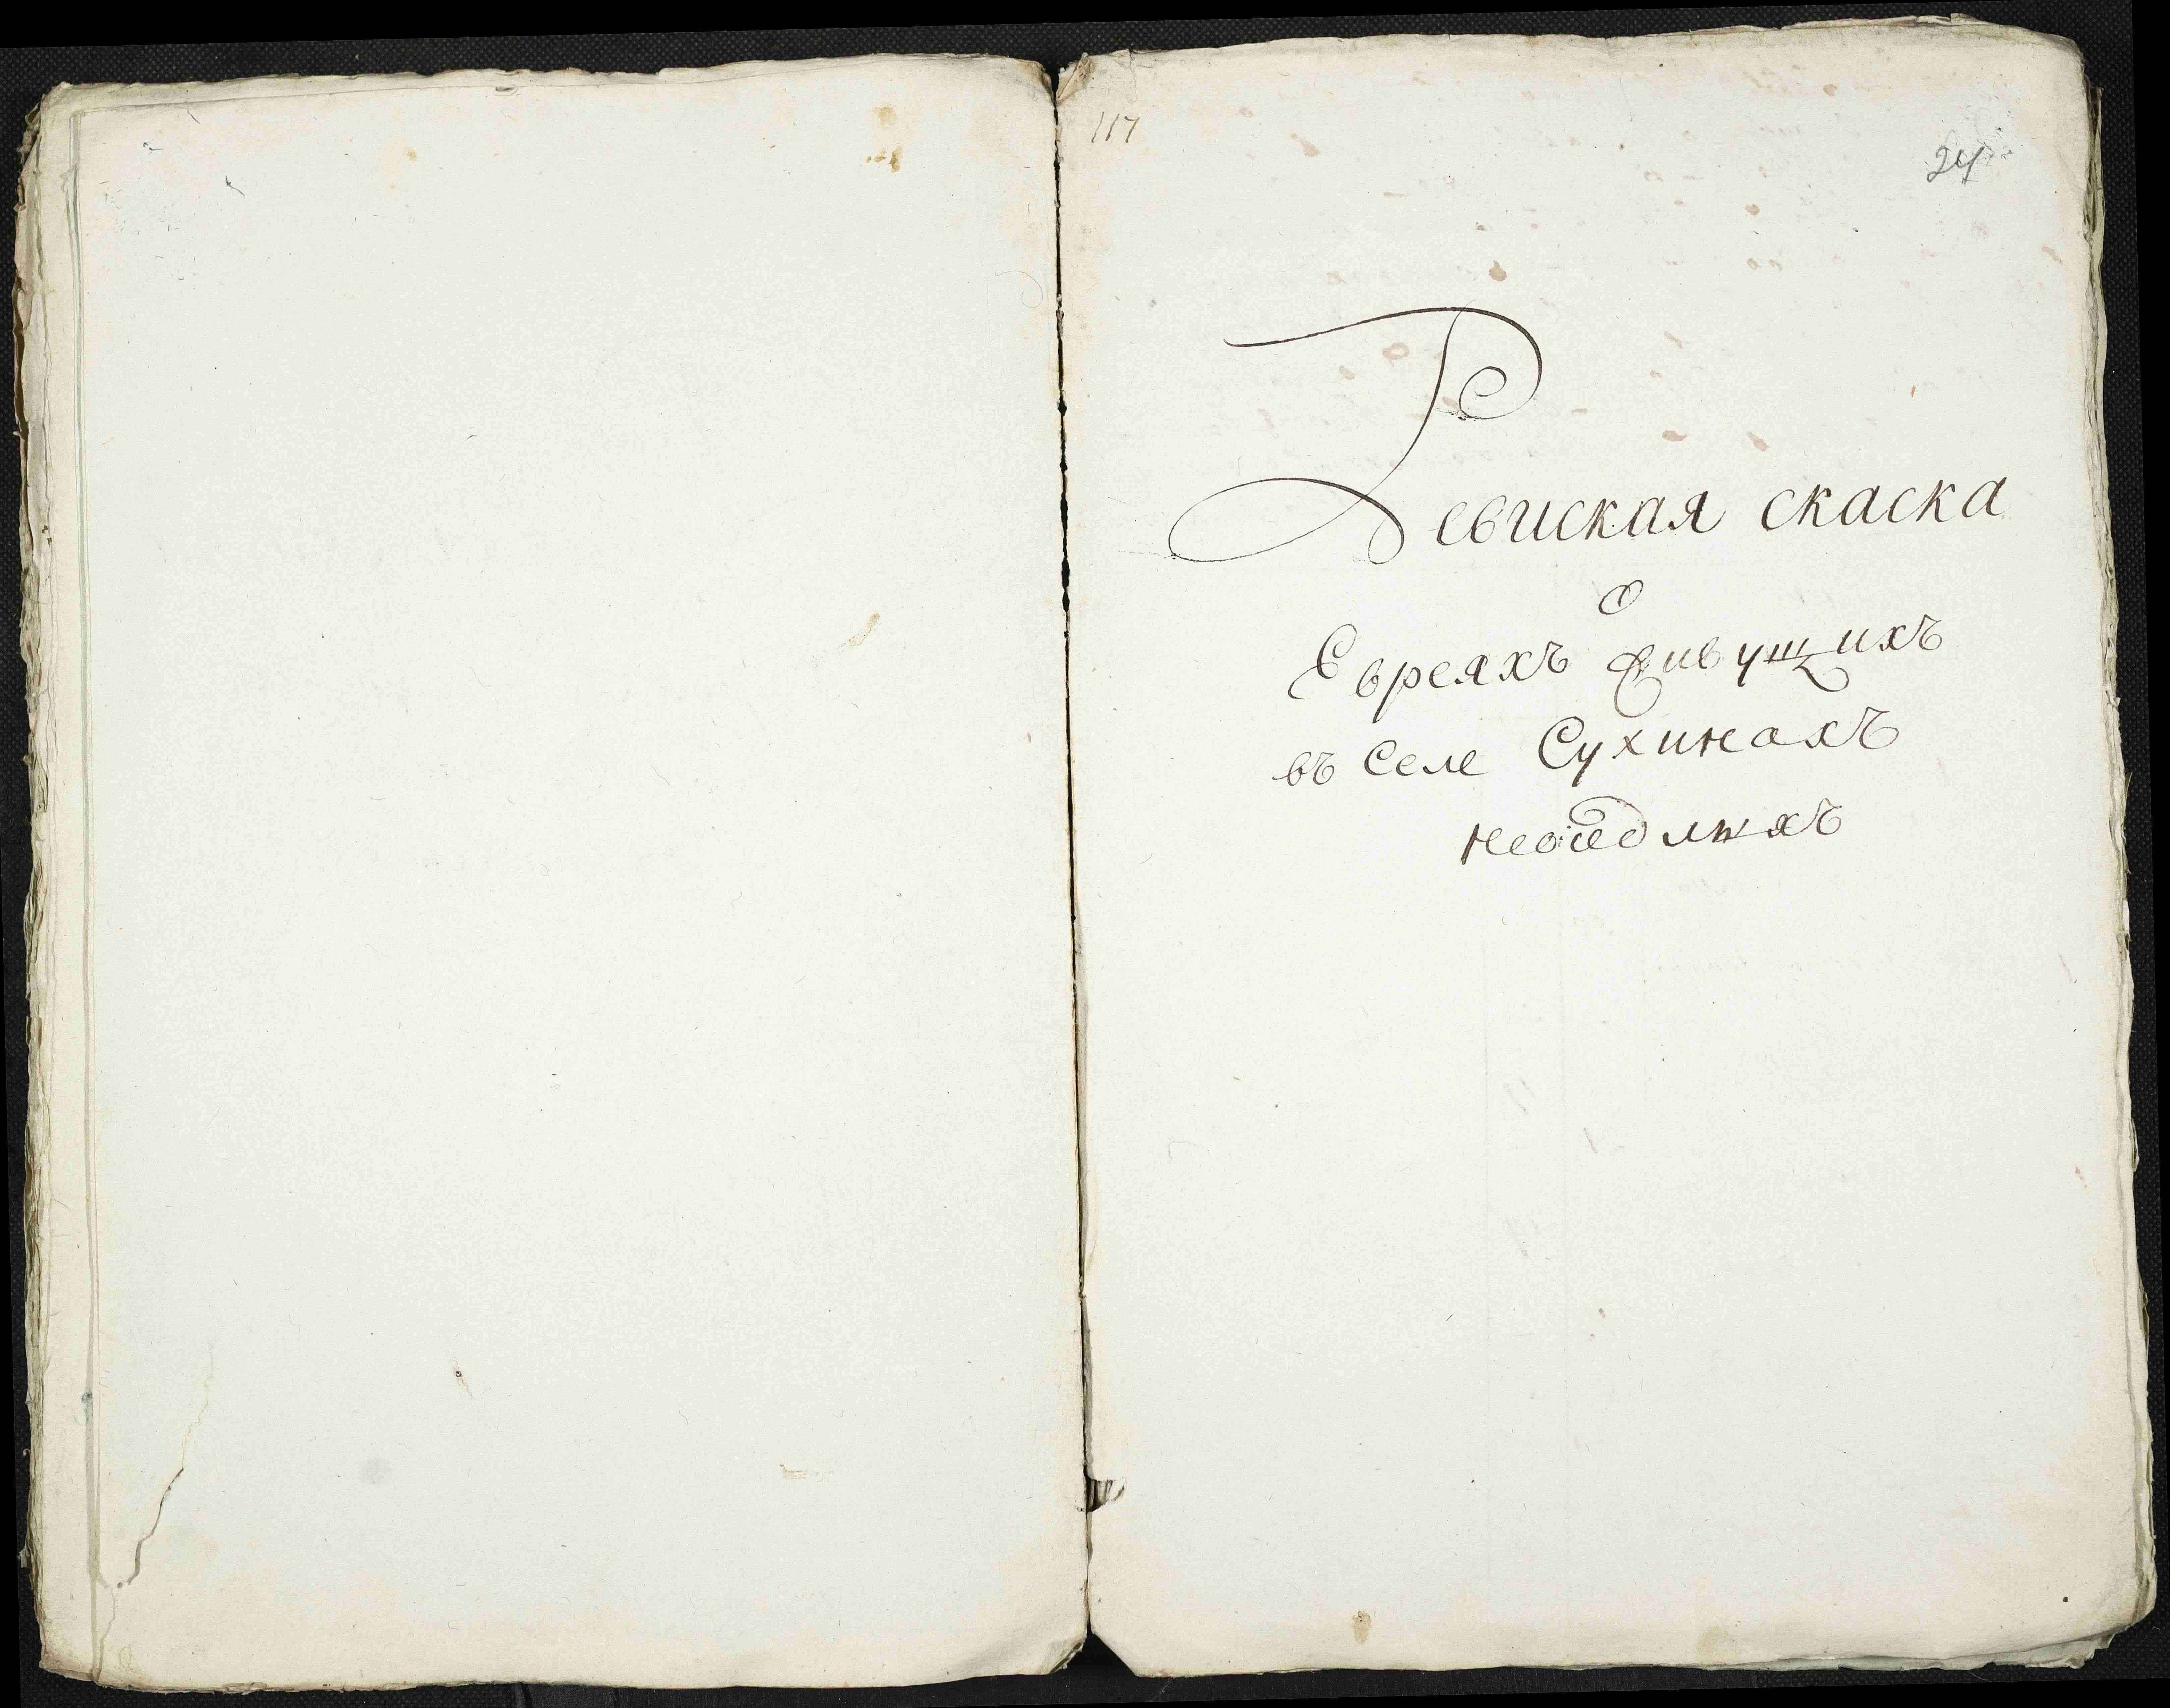 117
24
Ревиская скаска
о
Евреяхъ живущихъ
въ селе Сухинахъ
неоседлыхъ